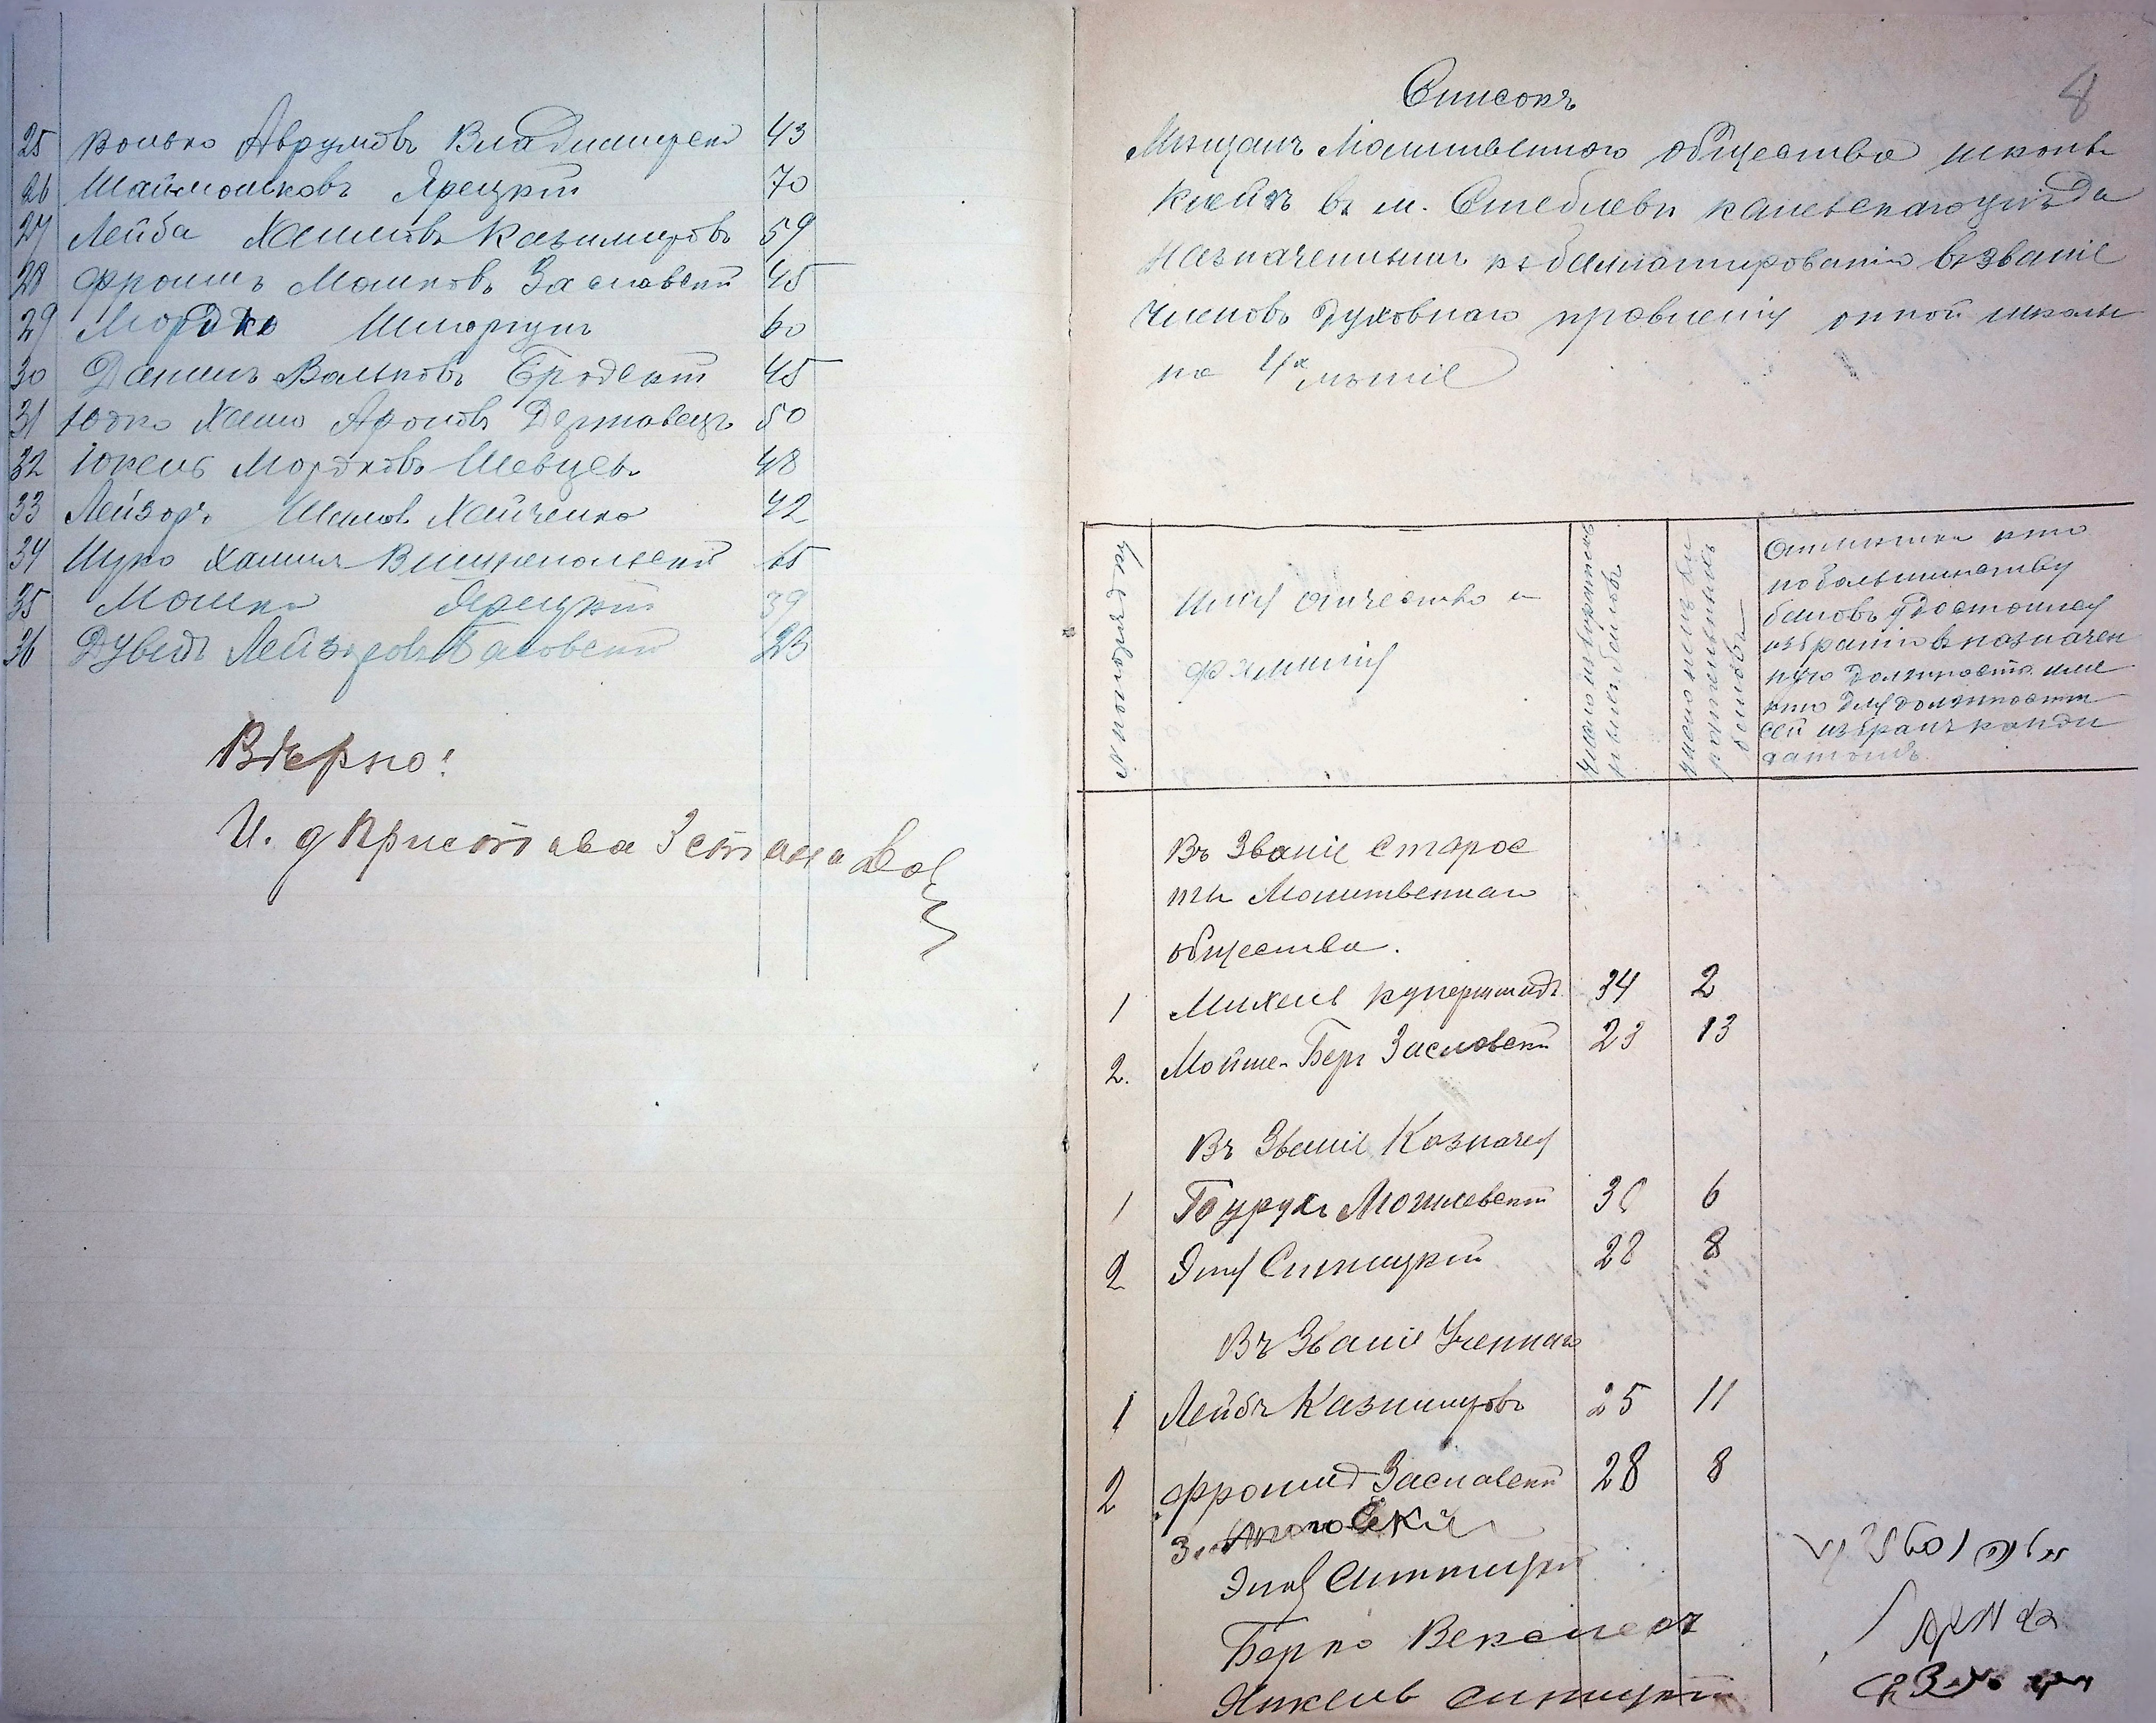 25 Волько Аврумовъ Владимирски 43
26 Шай Мошковъ Ярецкiй 70
27 Лейба Хаимовъ Казимировъ 59
28 Фроимъ Мошковъ Заславскiй 45
29 Мордко 60
30 Данилъ Вольковъ Бродскiй 45
31 Юдко Хаимъ Ароновъ 50
32 Юкель Мордковъ Шевцовъ 48
33 Лейзоръ Хайченко 42
34 Ицко Хаимъ 65
35 Мошко Ярецкiй 39
36 Дувидъ Лейзоровъ 23
Вѣрно!
И. д Пристава 3 стана
8
Списокъ
Мѣщанъ Молитвенного общества школы
въ м. Стеблевѣ Каневскаго уѣзда
назначенныхъ къ баллотированiю въ званiе
членовъ духовнаго правленiя оной школы
на лѣтiе
Имя отчество и
фамилiя
Число избирательныхъ баловъ
число неизбирательныхъ баловъ
Отмѣтка кто
по большинству
баловъ удостоился
избранiя въ назначен
ную должность или
кто для должности
сей избранъ канди
датомъ.
Въ Званiе Старос
ты Молитвеннаго
общества.
1 Михель Купершмидъ 34 2
2. Мойше-Беръ Заславскiй 23 13
Въ Званiе Казначея
1 Боурухъ Могилевскiй 30 6
2 Элiя Ситницкiй 28 8
Въ Званiе Ученнаго
1 Лейбъ Казимировъ 25 11
2 Фроимъ Заславскiй 28 8
Элiя Ситницкiй
Берко Векслеръ
Янкель Ситницкiй